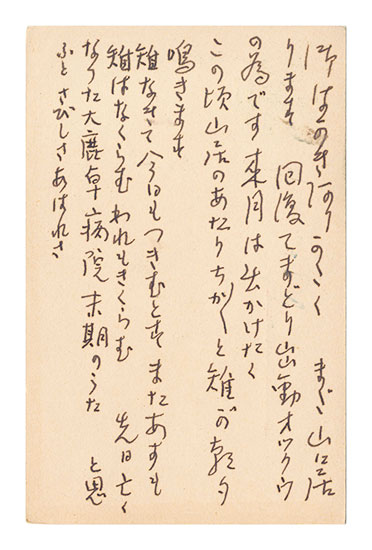 まだ山居
りますそ 回復てまどり出動オックウ
の為です 来月は出かけたく
この頃山居のあたりちかくと雉が朝夕
鳴きます
雉なきて今日もつきむとす またあすも
雉はなくらむ われもきくらむ 先日亡く
なつた大鹿卓 病院末期のうた と思
ふと さびしさあはれさ